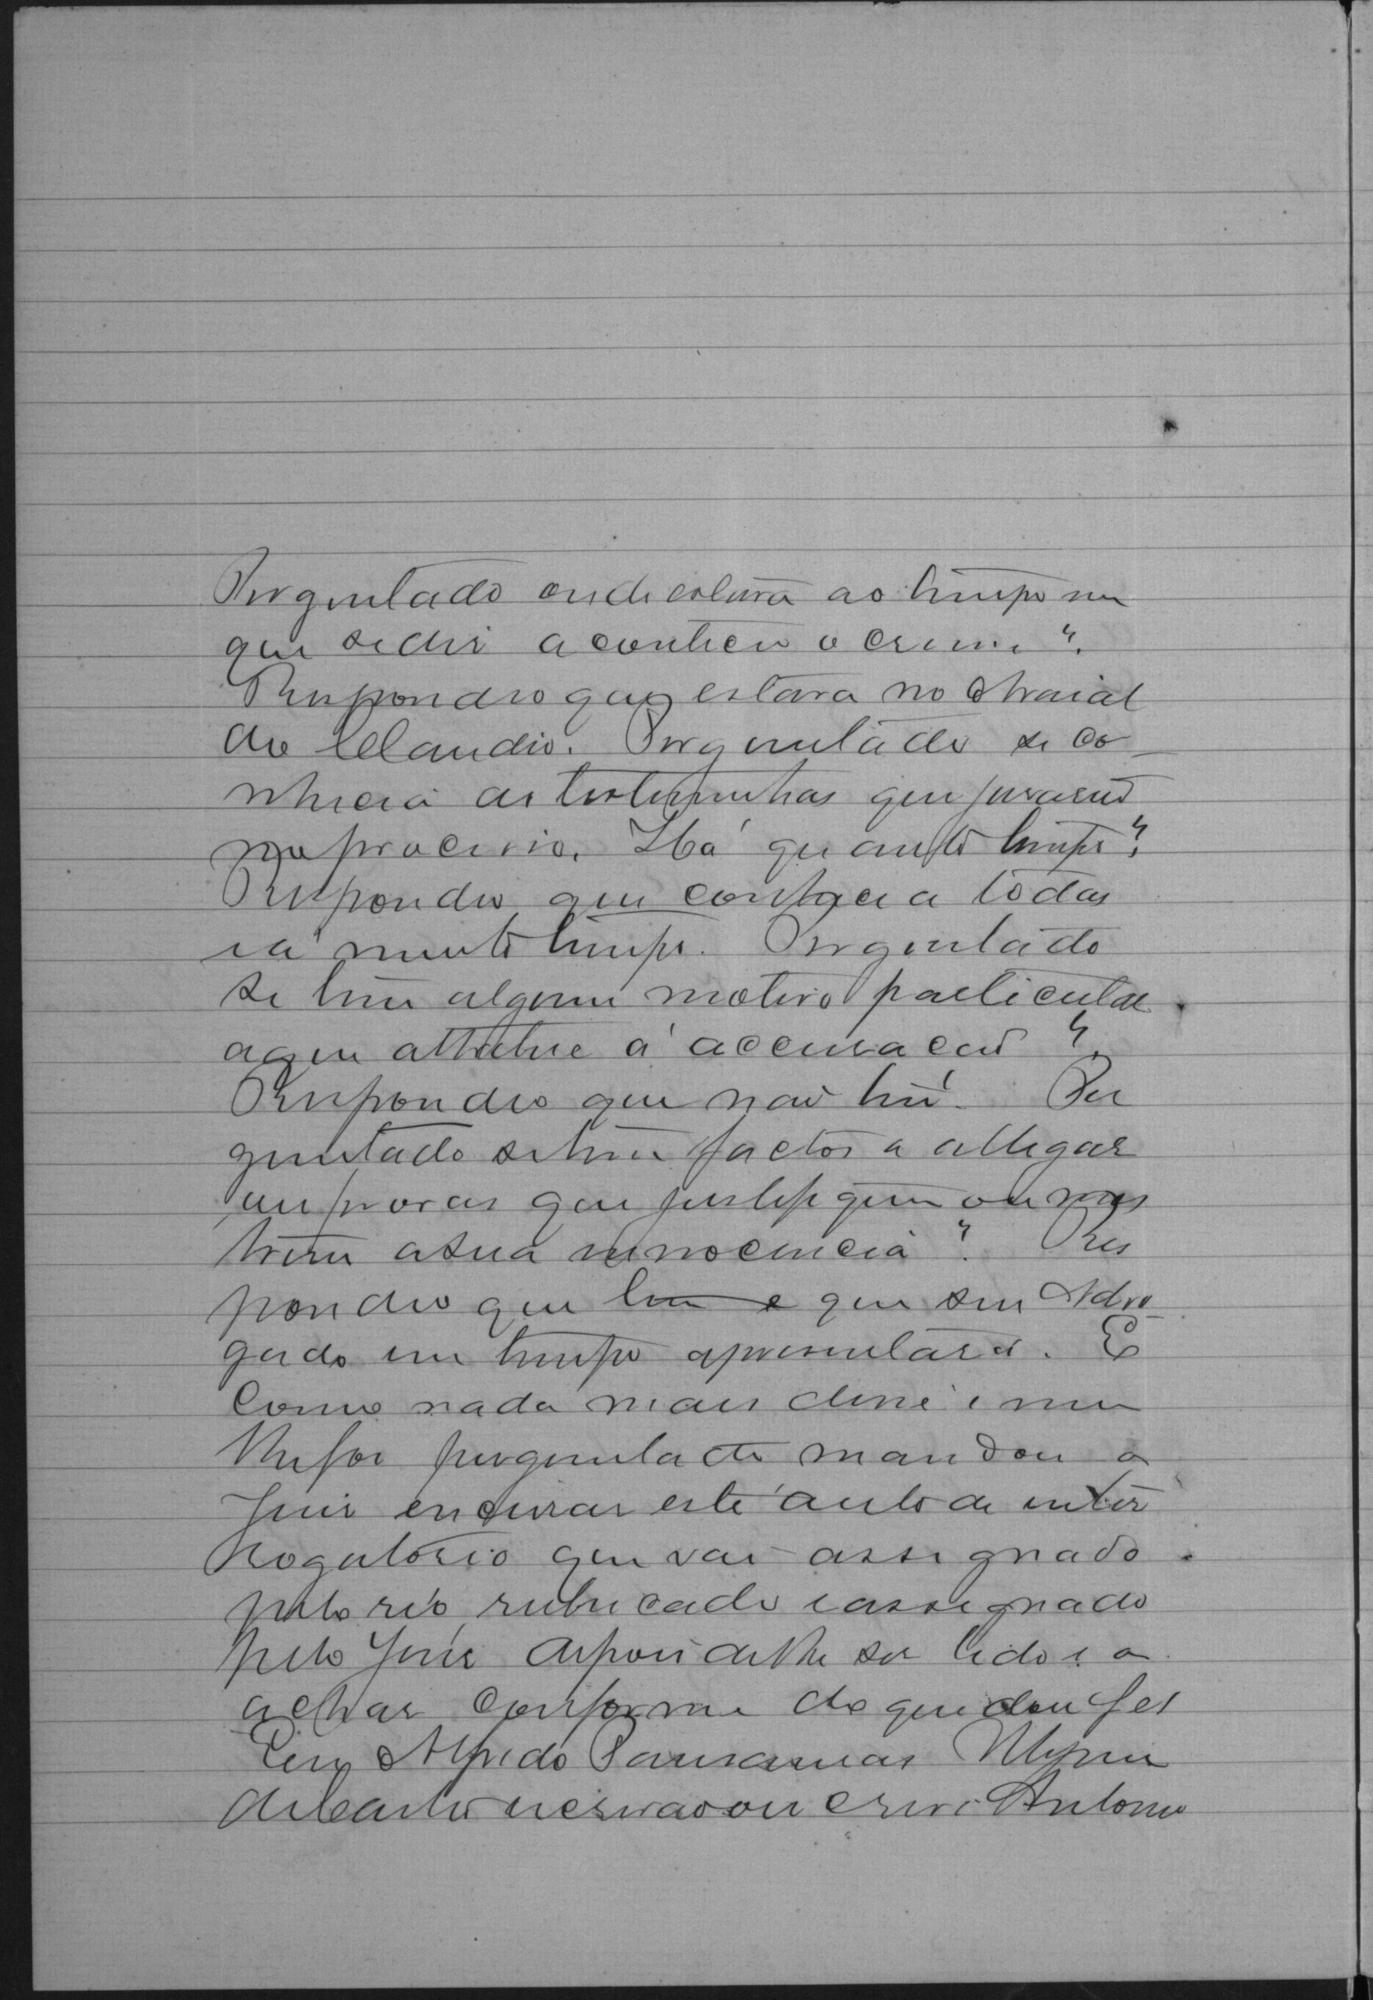 Perguntado onde estava ao tempo em
que se diz aconteceu o crime?
Respondeo que estava no Arraial
do Claudio. Perguntado se co-
nhecia as testemunhas que jurarão
no processo. Ha quanto tempo?
Respondeo que conhecia a todas
ia muito tempo. Perguntado
se tem algum motivo particular
a que attribue á accusação?
Respondeo que não tem. Per
guntado se tem factos a allegar
ou provas que justifiquem ou mos
trem a sua innocencia? Res
pondeo que tem e que seu Advo-
gado em tempo apresentará. E
Como nada mais disse e nem
lhe foi perguntado mandou o
Juiz encerrar este auto de inter
rogatorio que vai assignado
pelo réo rubricado e assignado
pelo Juiz depois de lhe ser lido e o
achar conforme do que dou fé
Eu Alfredo
de Castro escrivão o escrevi Antonio